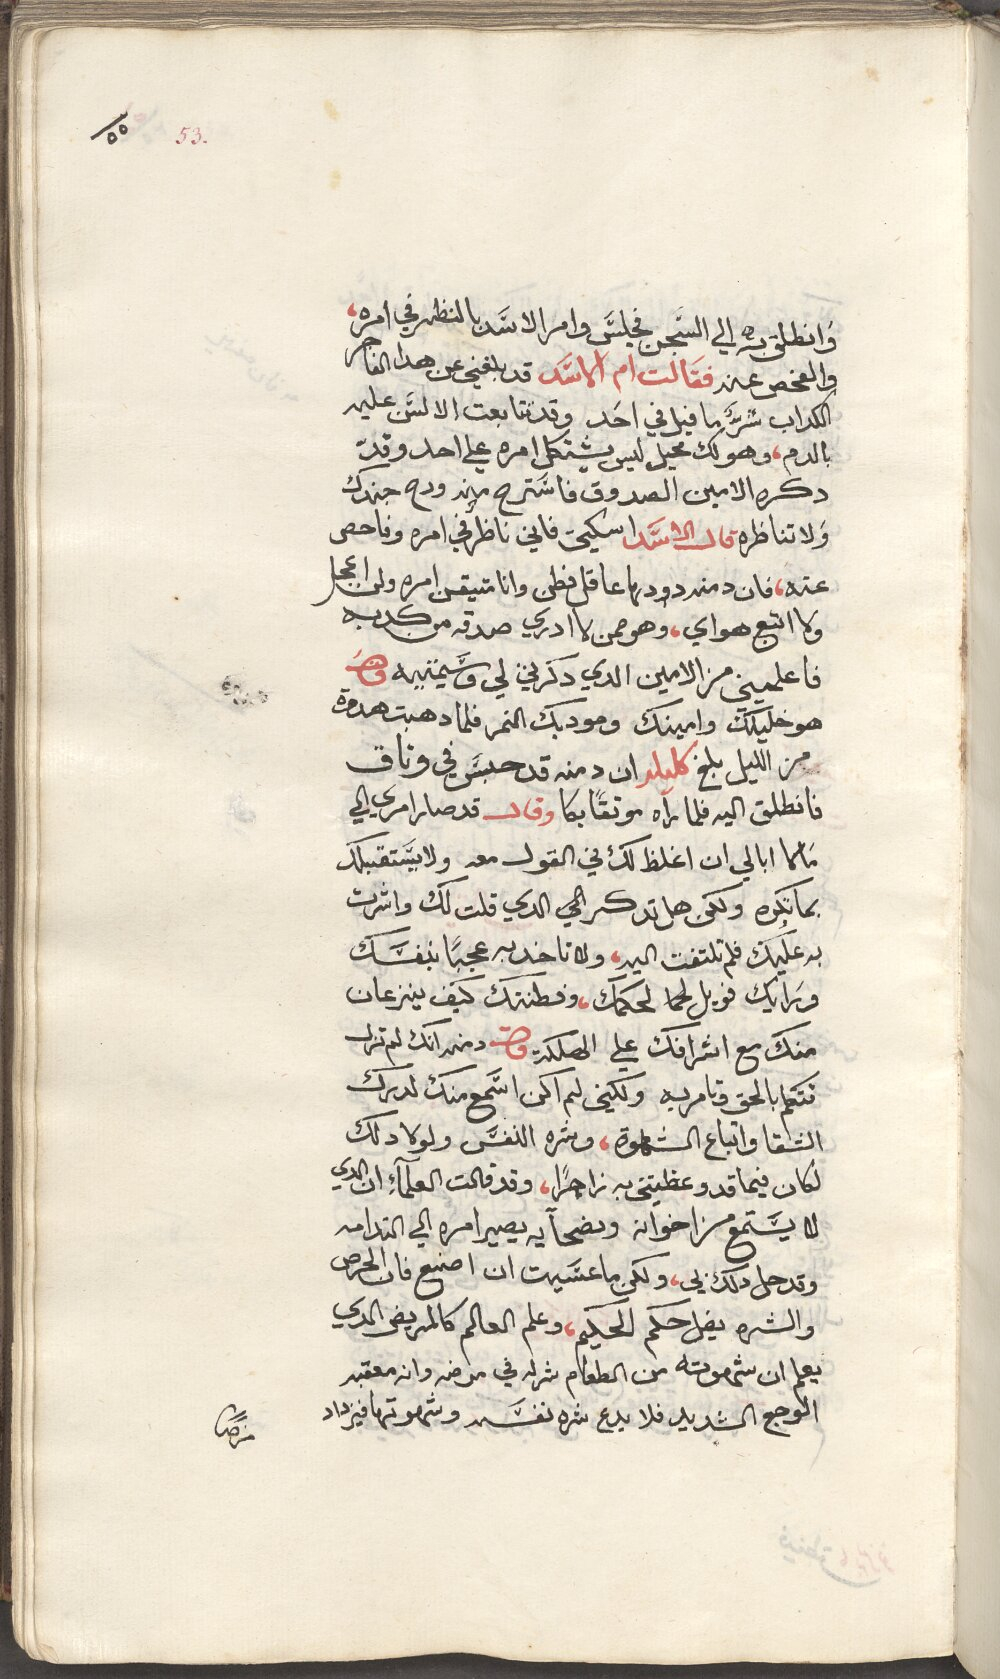 ٥٥ 53.
وانطلق به الي السجن فجلس وامر الاسد بالنظر في امره،
والفحص عنه فقالت ام الاسد قد بلغني عن هدا الفاجر
الكداب شر ما قيل في احد وقد تتابعت الالسن عليه
بالدم، وهو لك محيل ليس يشتكل امره علي احد وقد
دكره الامين الصدوق فاسترح منه ورح جندك
ولا تناظره قال الاسد اسكيتي فاني ناظر في امره وفاحص
عنه، فان دمنه دو دها عاقل فطن وانا متيقن امره ولن اعجل
ولا اتبع هواي، وهو ممن لا ادري صدقه من كدبه
فاعلميني من الامين الدي دكرتني لي وسيمتيه وقت
هو خليلك وامينك ومودبك النمر فلما دهبت هدوة
من الليل بلغ كليله ان دمنه قد حبس في وتاق
فانطلق اليه فلما رآه موتقًا بكا وقال قد صار امري الي
ما لا ابالي ان اغلظ لك في القول معه ولا يستقبلك
بما تكره ولكن هل تدكر الي الدي قلت لك واشرت
به عليك فلم تلتفت اليه، ولا تاخد به عجبًا بنفسك
ورايك فويل لهما لحكمك، وفطنتك كيف ينزعان
منك مع اشرافك علي الهلكة وقت دمنه انك لم تزل
تتكلم بالحق وتامر به ولكني لم اكن اسمع منك لدرك
الشقا واتباع الشهوة، وشره النفس ولولا دلك
لكان فيما قد وعظيتني به زاجرًا، وقد قالت العلمآء ان الدي
لا يستمع من اخوانه ونصحآيه يصير امره الي الندامه
وقد حل دلك بي، ولكن ما عسيت ان اصنع فان الحرص
والشره يفل حكم الحكيم، وعلم العالم كالمريض الدي
يعلم ان شهوته من الطعام شر له في مرضه وانه معقبه
الوجع الشديد فلا يدع شره نفسه وشهوتها فيزداد
مرضًا